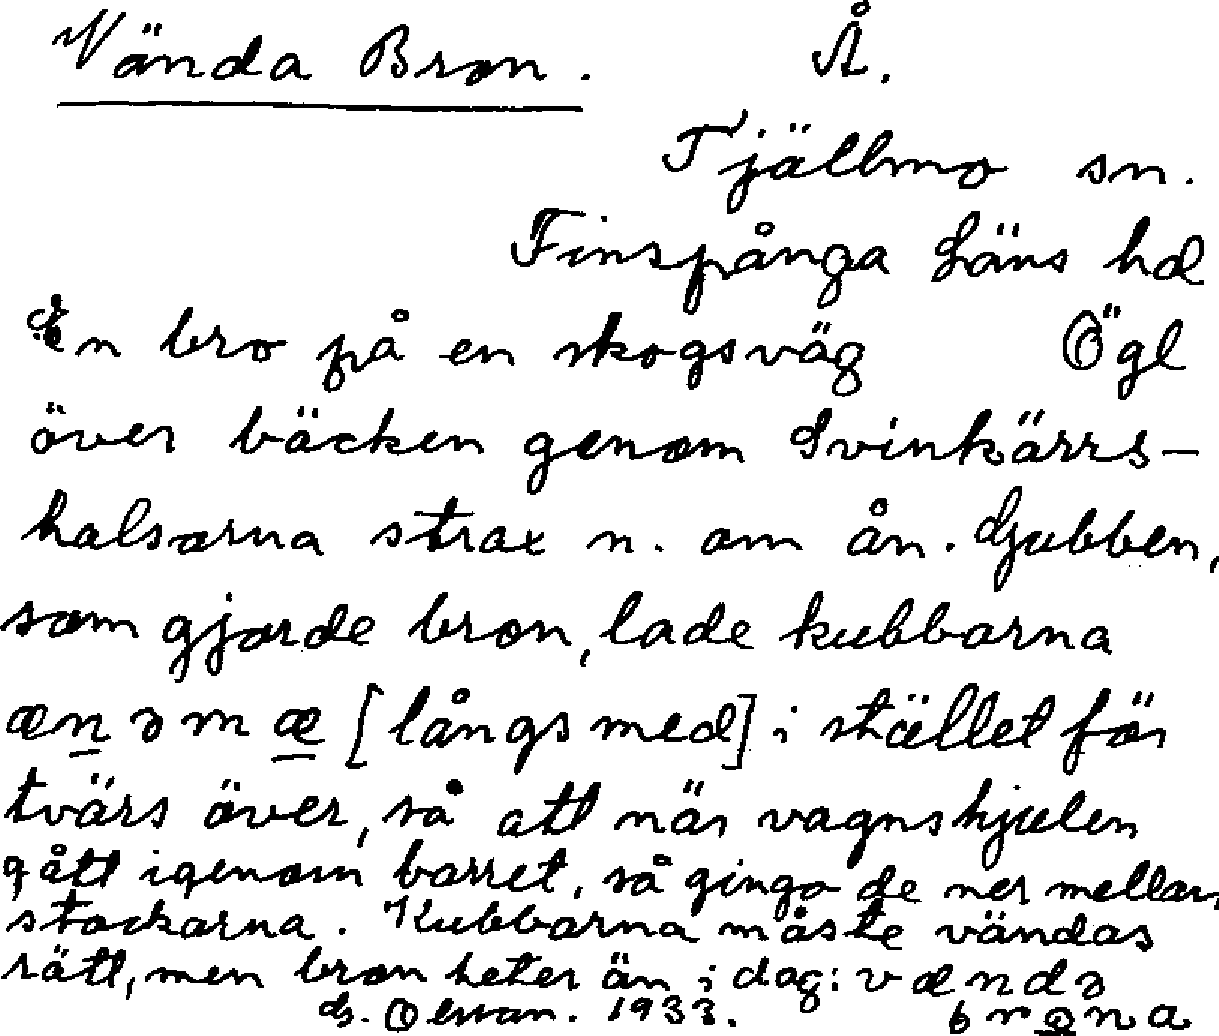 Vända Bron. Å.
Tjällmo sn.
Finspånga Läns hd
En bro på en skogsväg Ögl
över bäcken genom Svinkärrs-
halsarna strax n. om ån. Gubben,
som gjorde bron, lade kubbarna
ænəmæ [långs med] i stället för
tvärs över, så att när vagnshjulen
gått igenom barret, så gingo de ner mellan
stockarna. Kubbarna måste vändas
rätt, men bron heter än i dag: vændə
G. Olsson. 1933. brona